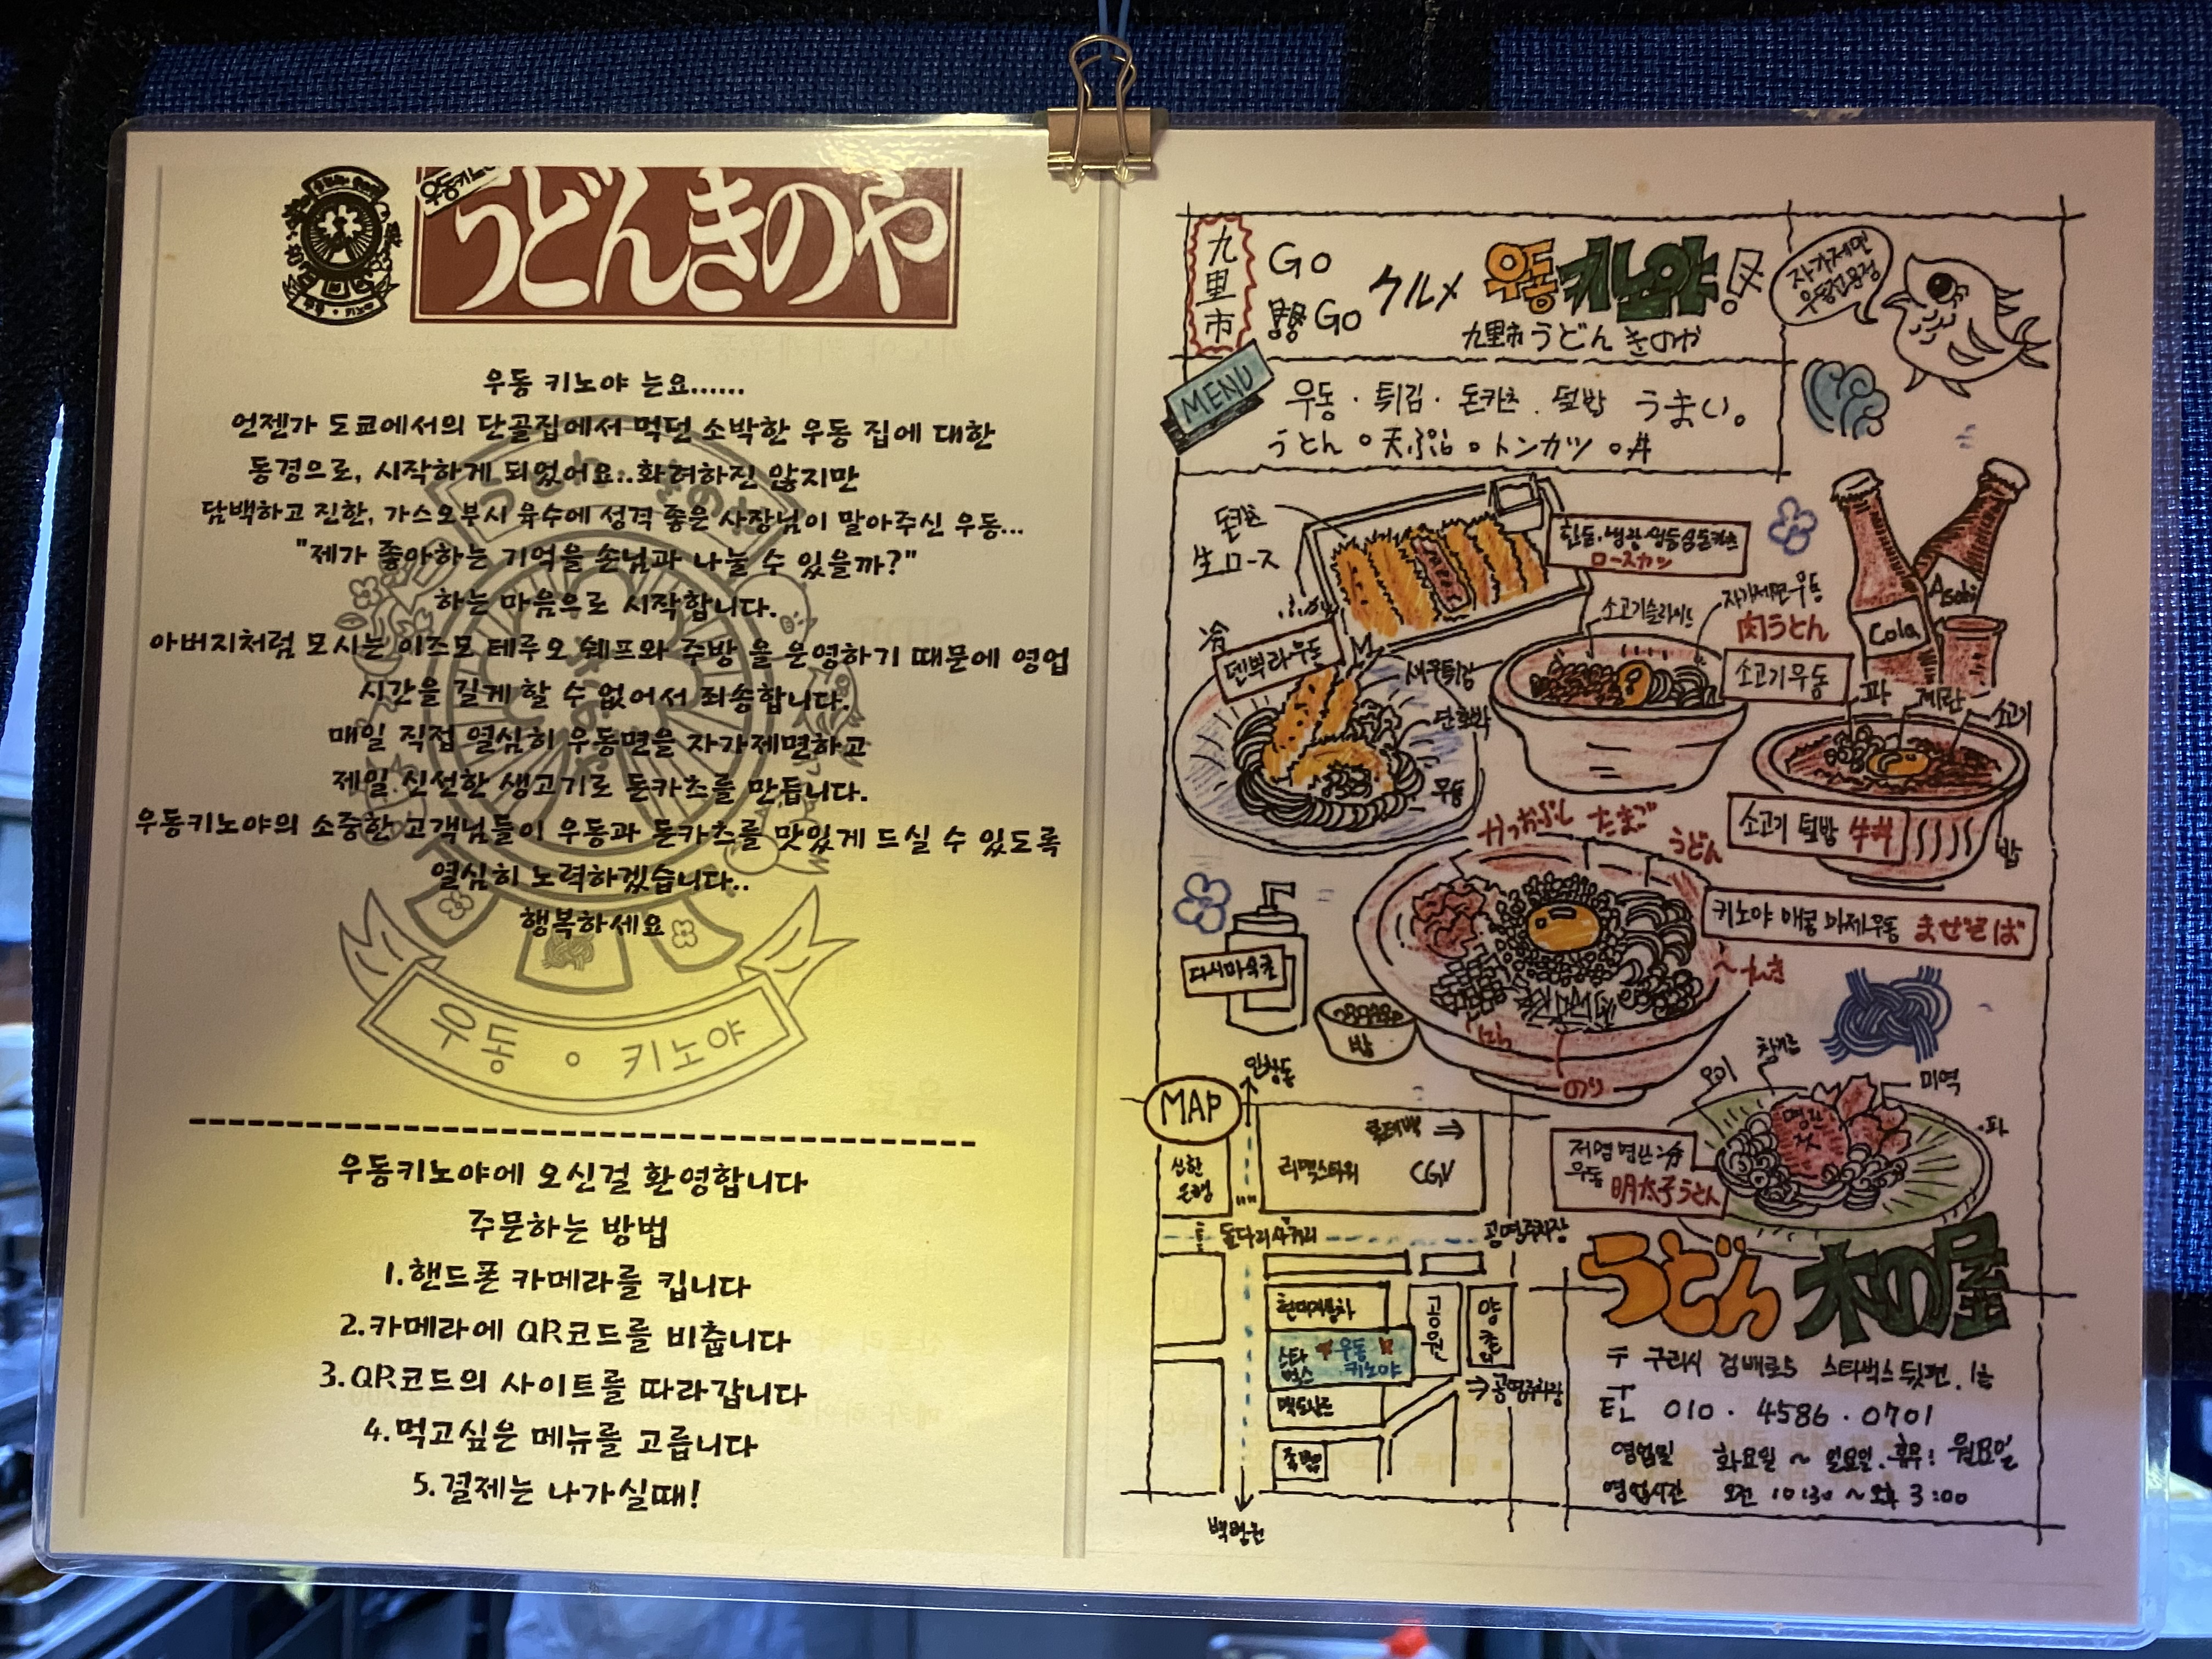 うどんきのや
우동 키노야 는요......
언젠가 도쿄에서의 단골집에서 먹던 소박한 우동 집에 대한
동경으로, 시작하게 되었어요..화려하진 않지만
담백하고 진한, 가스오부시 육수에 성격 좋은 사장님이 말아주신 우동...
"제가 좋아하는 기억을 손님과 나눌 수 있을까?"
하는 마음으로 시작합니다.
아버지처럼 모시는 이즈모 테루오 쉐프와 주방 을 운영하기 때문에 영업
시간을 길게 할 수 없어서 죄송합니다.
매일 직접 열심히 우동면을 자가제면하고
제일 신선한 생고기로 돈카츠를 만듭니다.
우동키노야의 소중한 고객님들이 우동과 돈카츠를 맛있게 드실 수 있도록
열심히 노력하겠습니다..
행복하세요
우동 키노야
우동키노야에 오신걸 환영합니다
주문하는 방법
1.핸드폰 카메라를 킵니다
2.카메라에 QR코드를 비춥니다
3.QR코드의 사이트를 따라갑니다
4.먹고싶은 메뉴를 고릅니다
5.결제는 나가실때!
九里市
Go
Go
クルメ
우동키노야!
九里市うどんきのや
자가제면
우동전문점
MENU
우동 · 튀김 · 돈카츠 . 덮밥 うまい。
うとん 。天ぷら 。トンカツ 。丼
돈카츠
生ロース
ロースカツ
소고기슬라이스
자가제면우동
肉うどん
소고기우동
Cola
Asahi
冷
덴뿌라우동
새우튀김
단호박
우동
파
계란
소고기
소고기 덮밥 牛丼
밥
かつおぶし
たまご
うどん
키노야 매콤 마제우동 まぜそば
ねぎ
のり
다시마식초
밥
MAP
인창동
신한
은행
리맥스타워
CGV
돌다리사거리
공영주차장
공원
스타
벅스
우동
키노야
맥도날드
공영주차장
오이
참기름
미역
명란
젓
파
저염명란 冷
우동 明太子うどん
うどん 木の屋
〒 구리시 검배로5 스타벅스 뒷편. 1층
TEL 010 · 4586 · 0701
영업일 화요일 ~ 일요일. 휴무: 월요일
영업시간 오전 10:30 ~ 오후 3:00